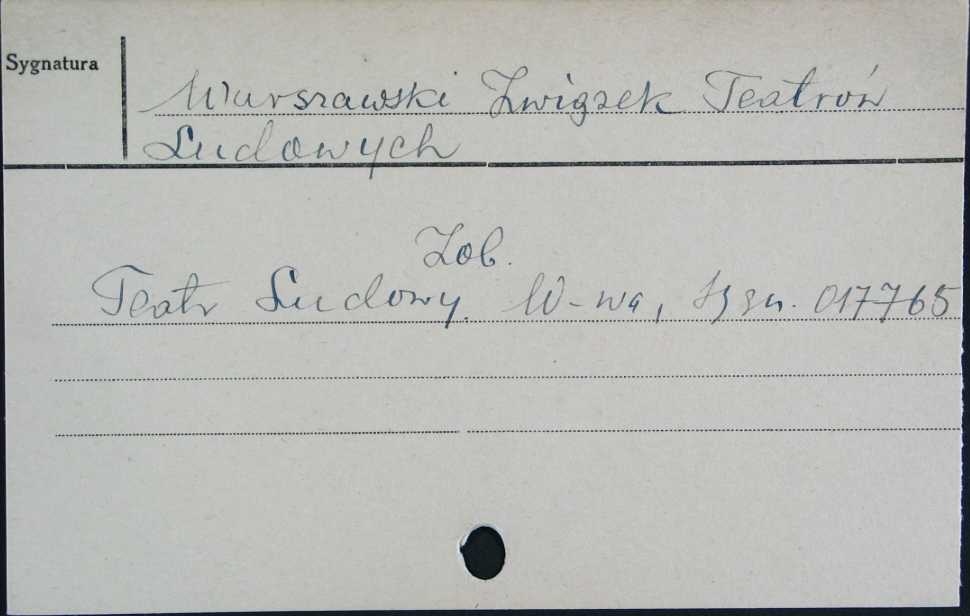 Sygnatura
Warszawski Związek Teatrów
Ludowych
Zob.
Teatr Ludowy. W-wa, Sygn. 017765